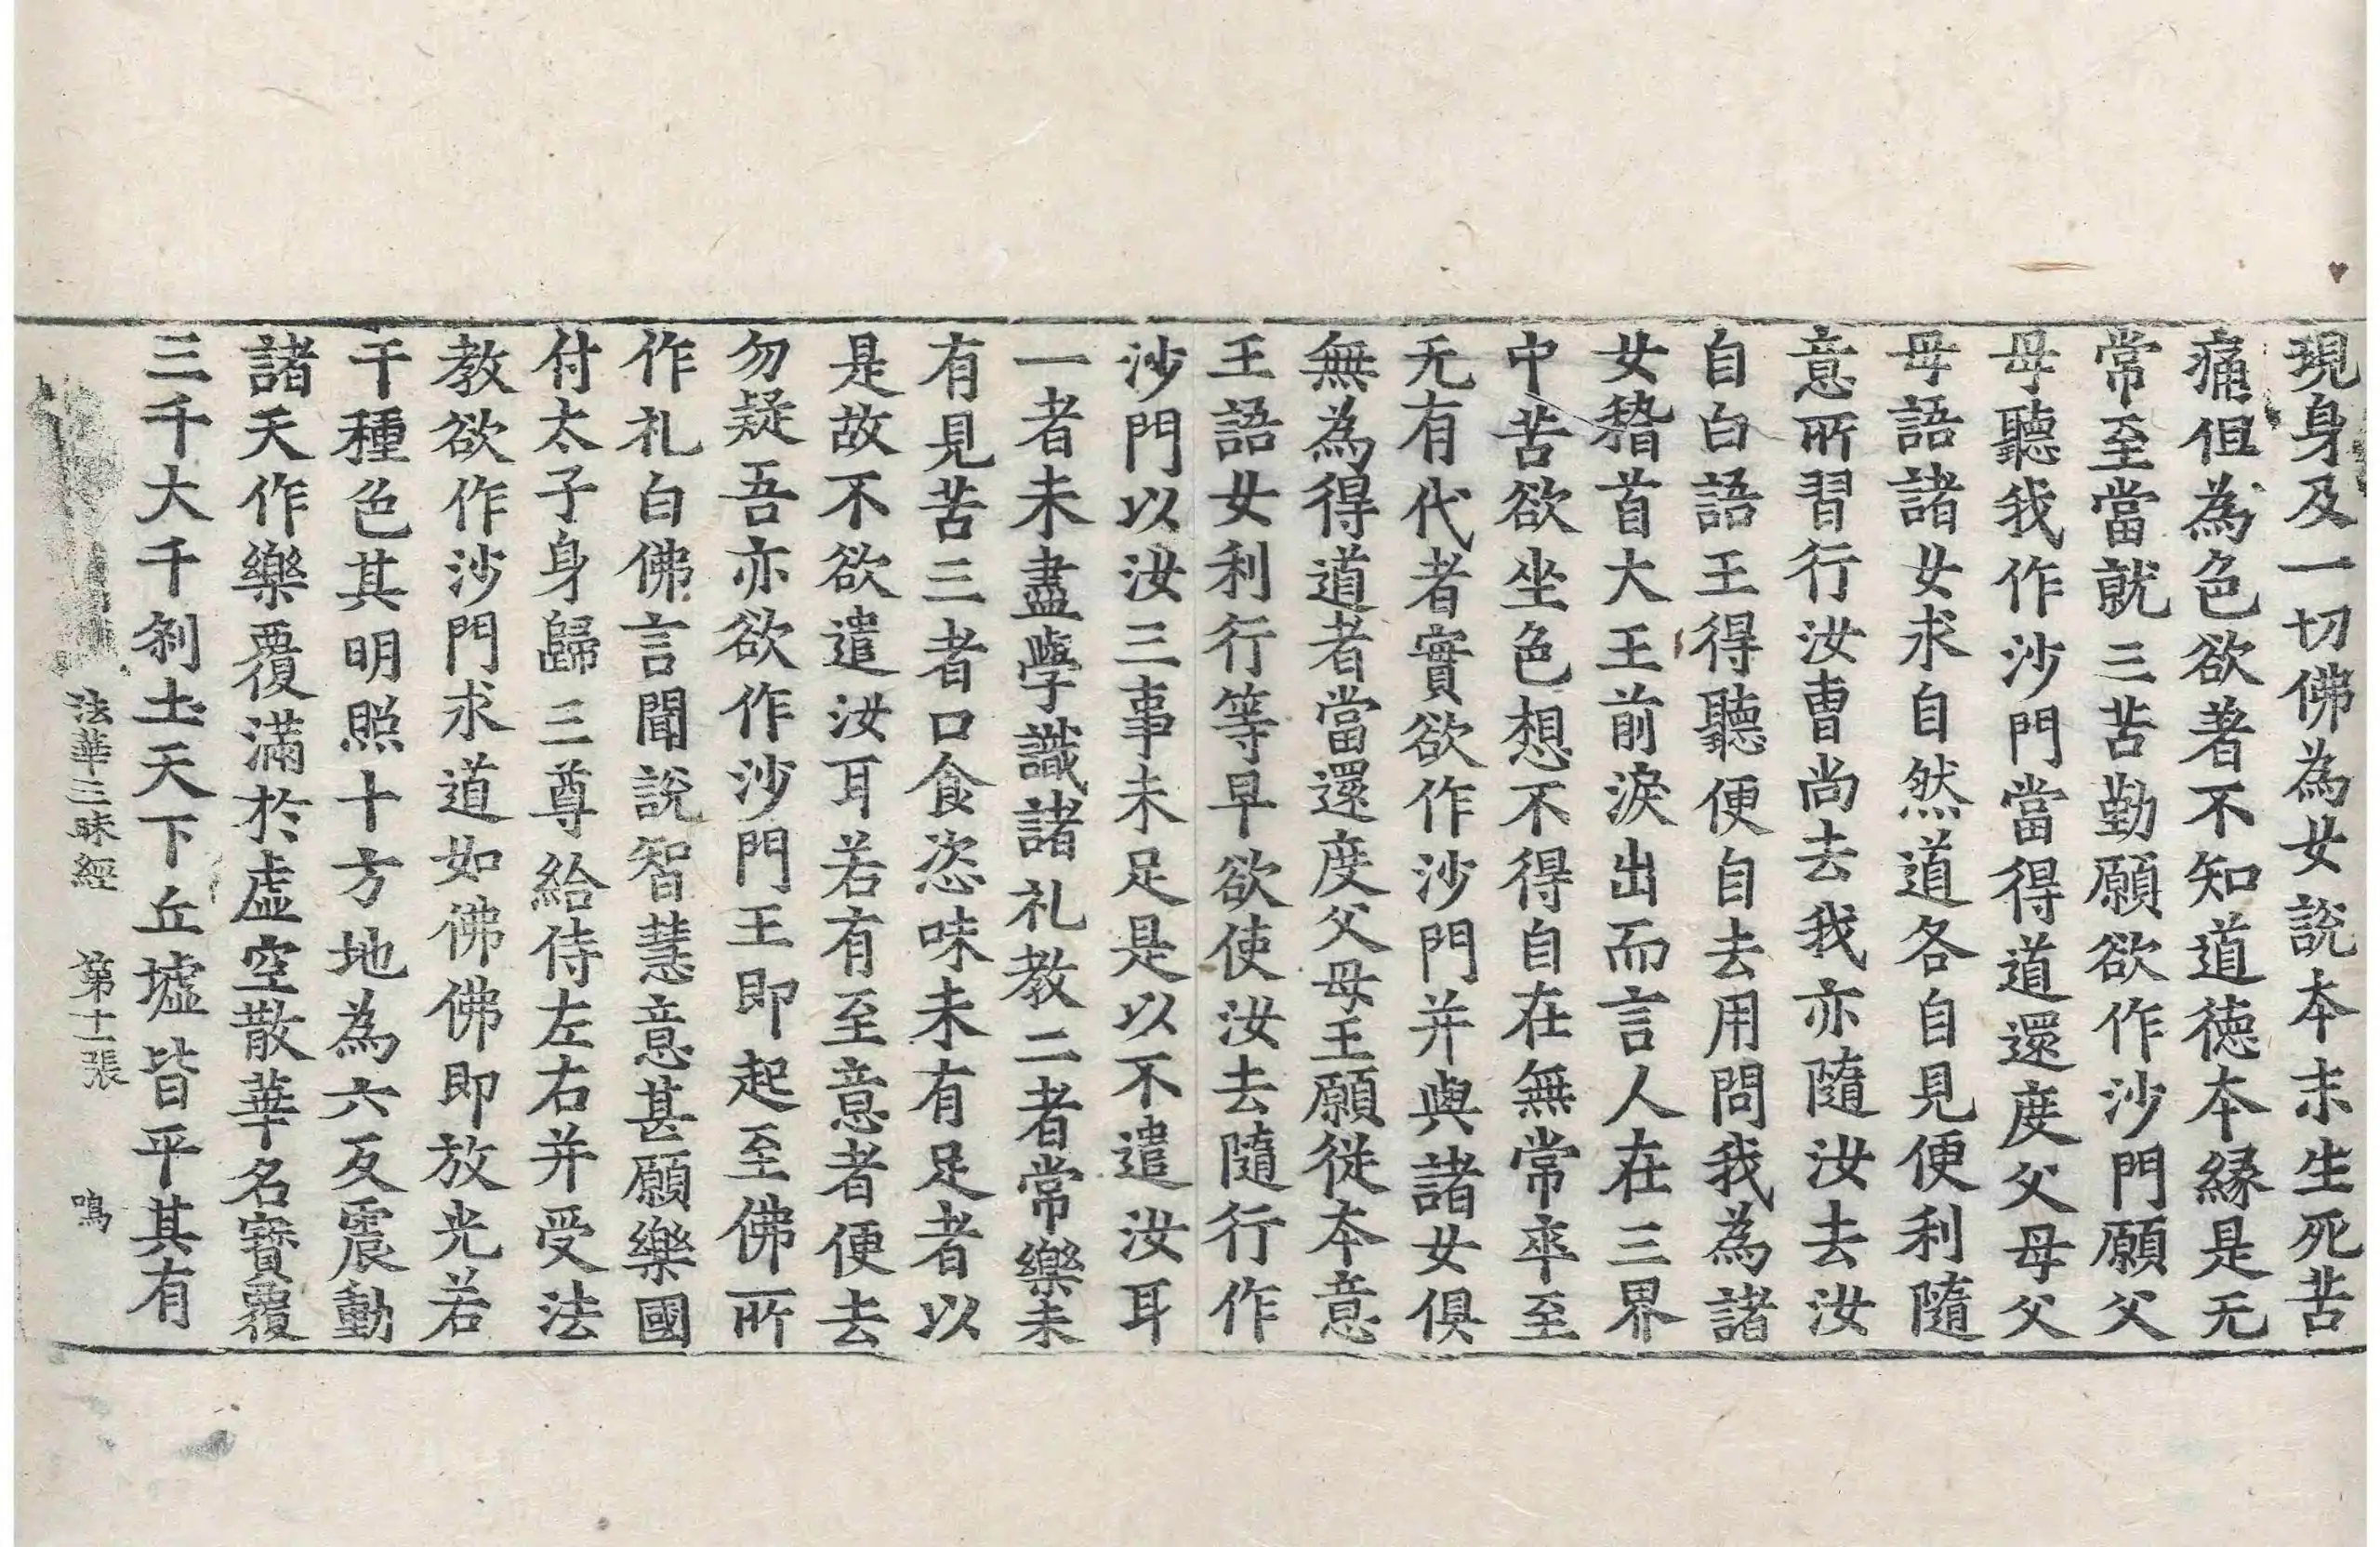 現身及一切佛為女說本末生死苦
痛但為色欲著不知道德本緣是无
常至當就三苦勤願欲作沙門願父
母聽我作沙門當得道還度父母父
母語諸女求自然道各自見便利隨
意所習行汝曹尚去我亦隨汝去汝
自白語王得聽便自去用問我為諸
女稽首大王前淚出而言人在三界
中苦欲坐色想不得自在無常卒至
无有代者實欲作沙門并與諸女俱
無為得道者當還度父母王願從本意
王語女利行等早欲使汝去隨行作
沙門以汝三事未足是以不遣汝耳
一者未盡學識諸礼教二者常樂未
有見苦三者口食恣味未有足者以
是故不欲遣汝耳若有至意者便去
勿疑吾亦欲作沙門王即起至佛所
作礼白佛言聞說智慧意甚願樂國
付太子身歸三尊給侍左右并受法
教欲作沙門求道如佛佛即放光若
干種色其明照十方地為六反震動
諸天作樂覆滿於虛空散華名寶覆
三千大千剎土天下丘墟皆平其有
法華三昧經 第十一張 鳴